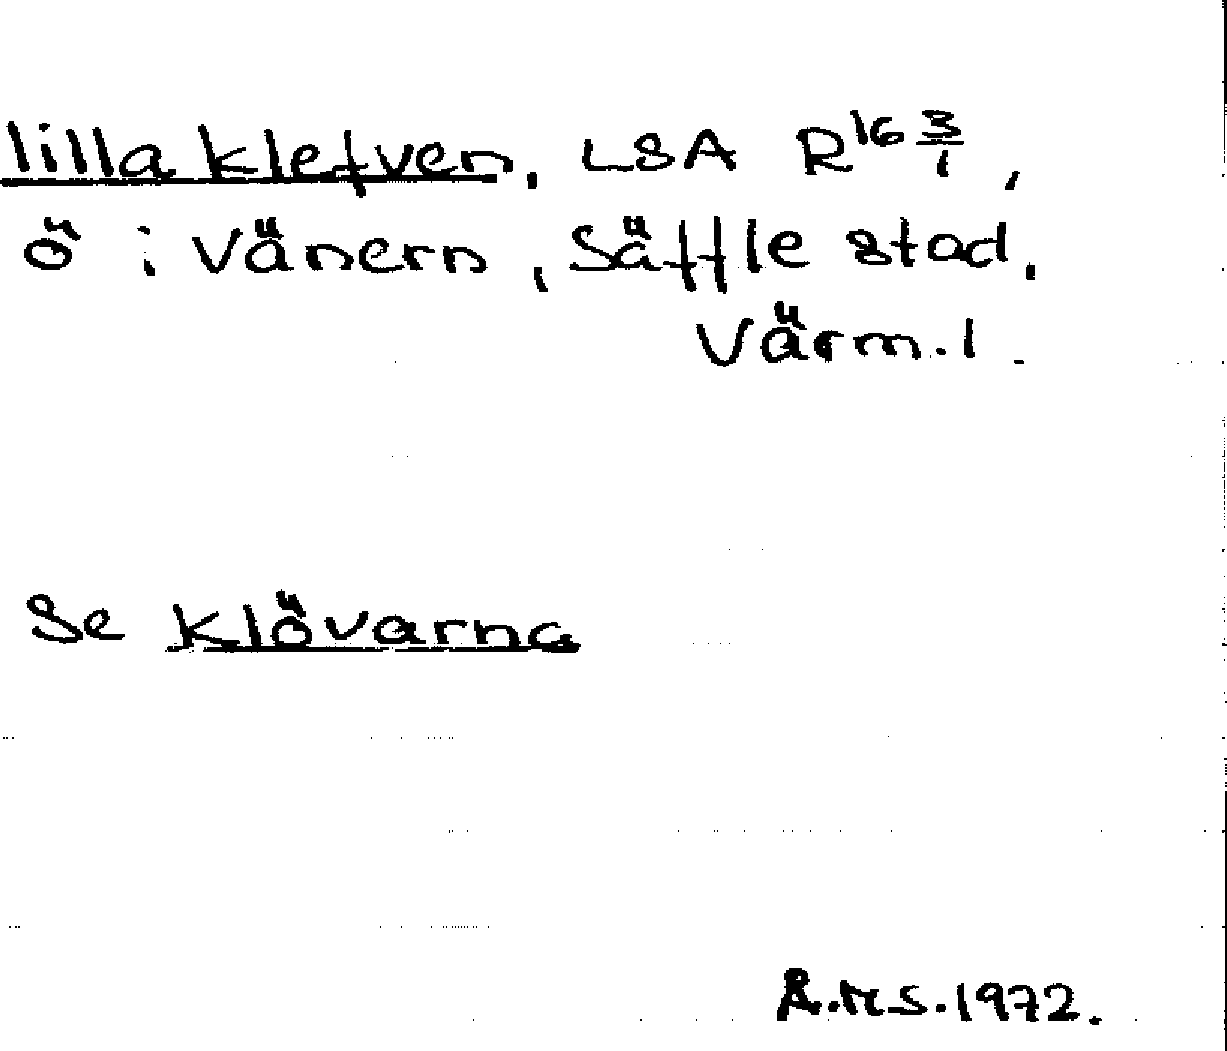 lilla klefven, LSA R16 3/1,
ö i Vänern, Säffle stad,
Värm. l.
Se Klövarna
Å.H.S. 1972.